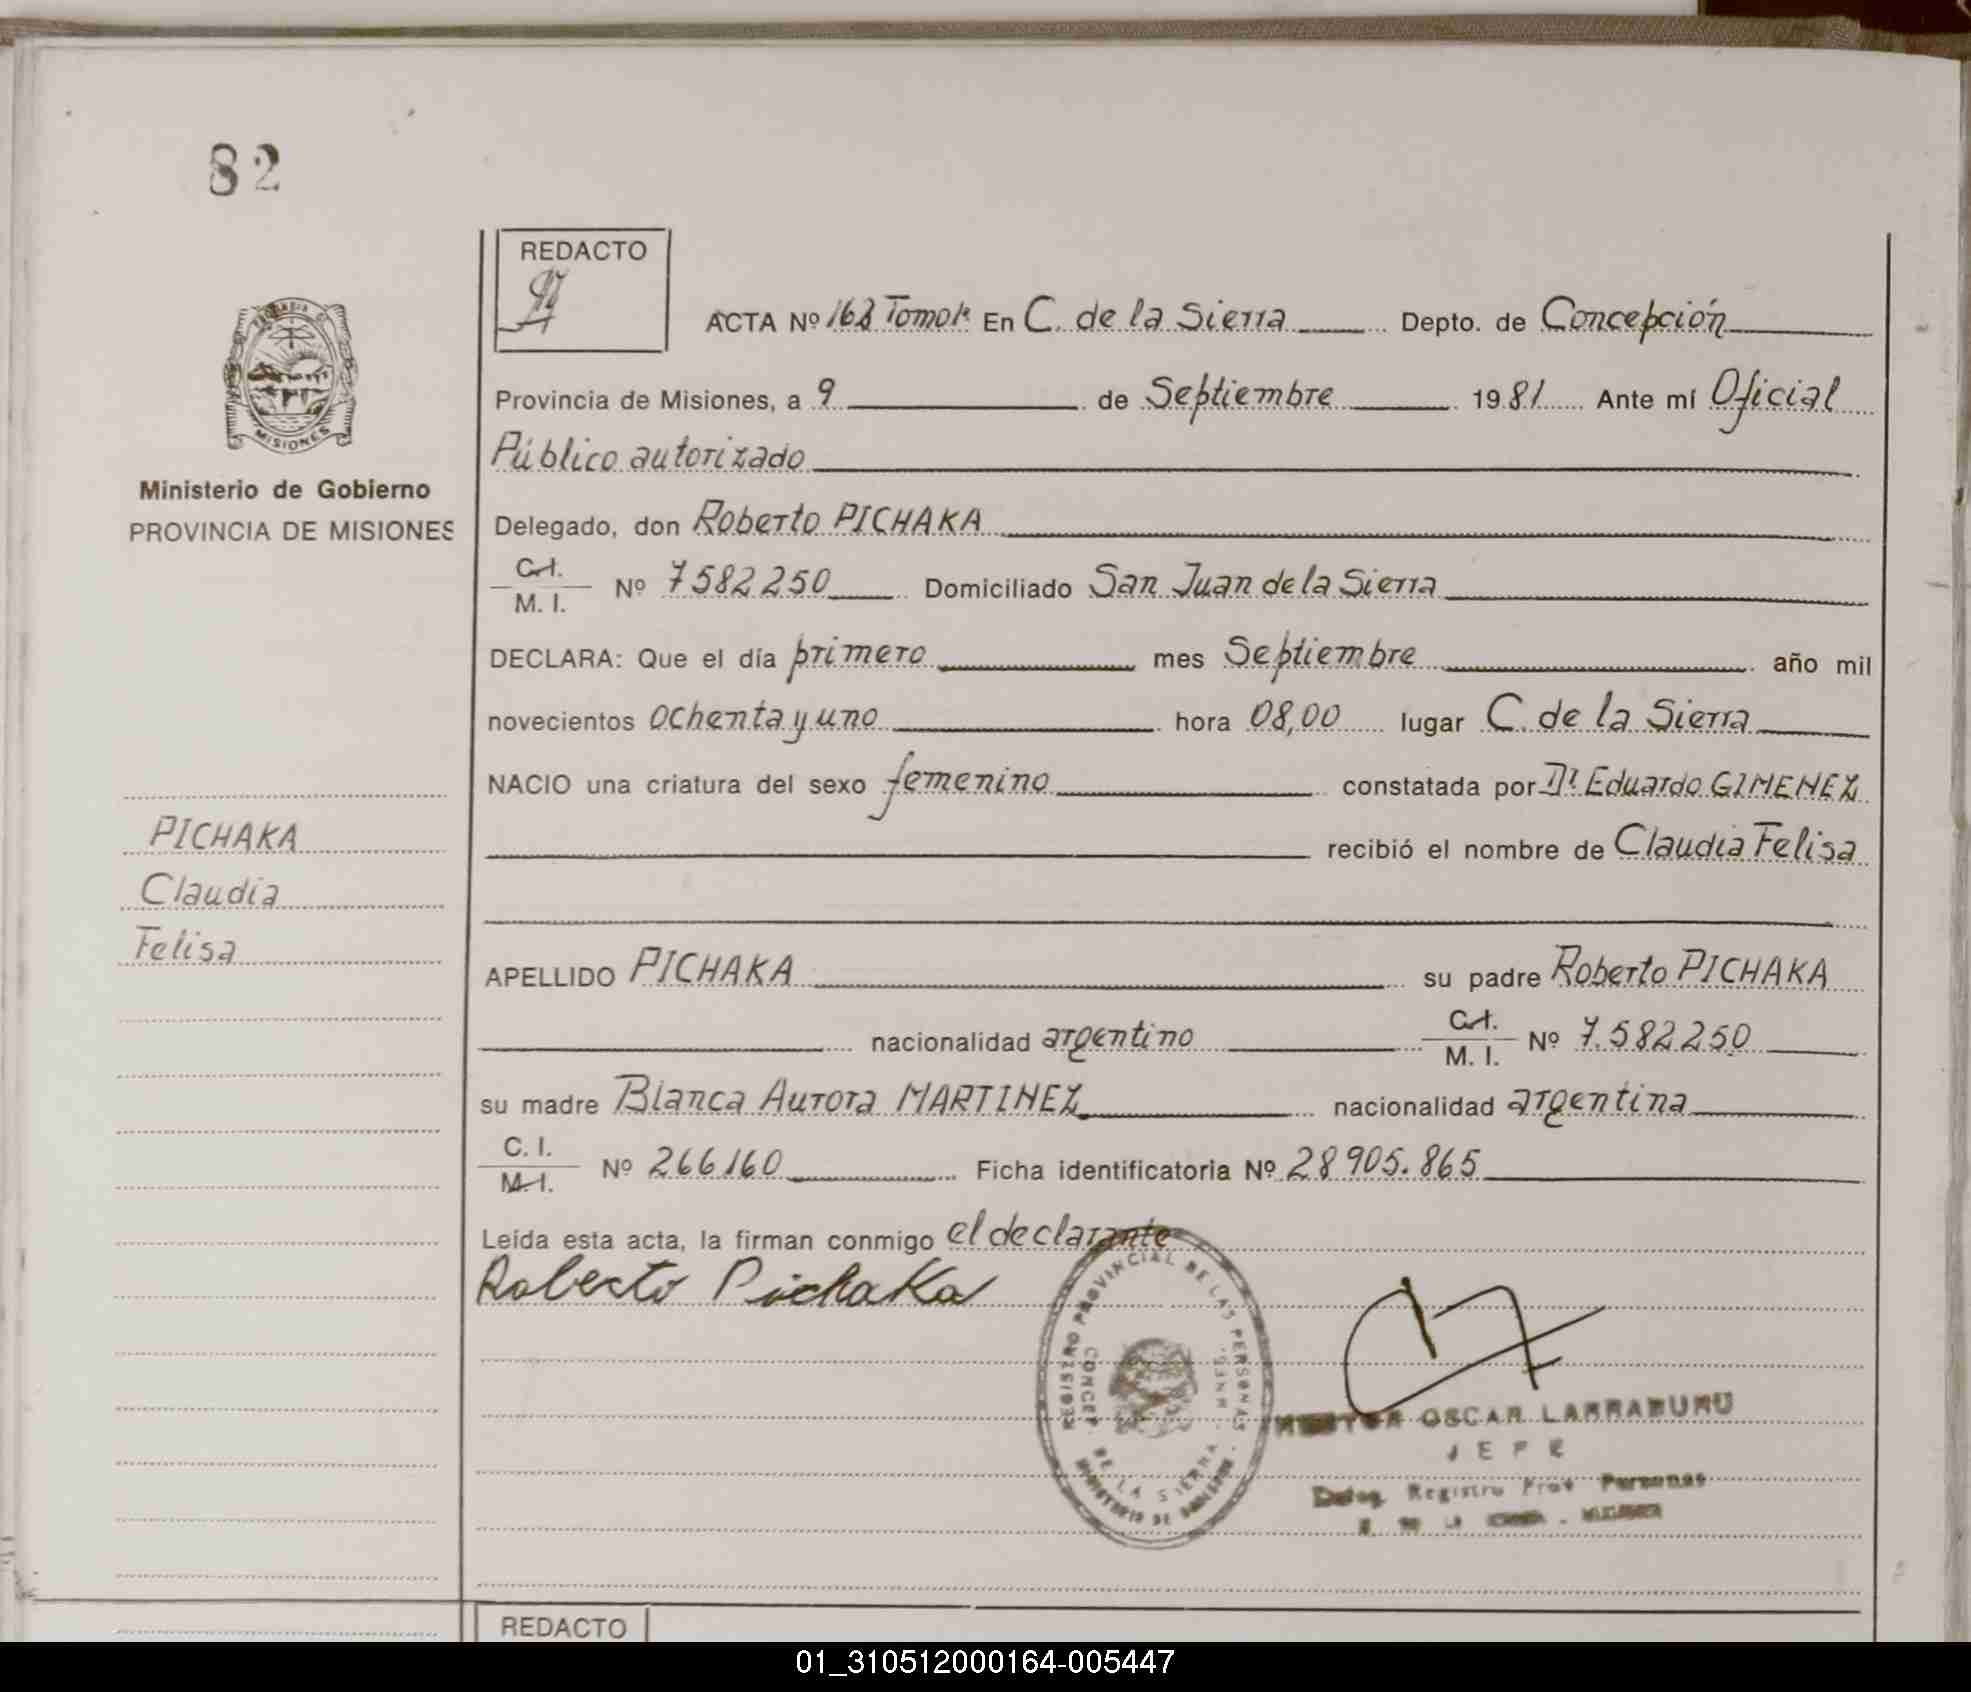 82
REDACTO
ACTA Nº 162 Tomo 1º En C. de la Sierra Depto. de Concepción
Provincia de Misiones, a 9 de Septiembre 1981 Ante mí Oficial
Público autorizado
MISIONES
Ministerio de Gobierno
PROVINCIA DE MISIONES
Delegado, don Roberto PICHAKA
C.I.
M. I. Nº 7582250 Domiciliado San Juan de la Sierra
DECLARA: Que el día primero mes Septiembre año mil
novecientos ochenta y uno hora 08,00 lugar C. de la Sierra
NACIO una criatura del sexo femenino constatada por Dr. Eduardo GIMENEZ
recibió el nombre de Claudia Felisa
PICHAKA
Claudia
Felisa
APELLIDO PICHAKA su padre Roberto PICHAKA
nacionalidad argentino C.I.
M. I. Nº 7.582250
su madre Blanca Aurora MARTINEZ nacionalidad argentina
C. I.
M.I. Nº 266160 Ficha identificatoria Nº 28905.865
Leída esta acta, la firman conmigo el declarante
Roberto Pichaka
REGISTRO PROVINCIAL DE LAS PERSONAS
CONCEP. DE LA SIERRA
MINISTERIO DE GOBIERNO
OSCAR LARRABURU
JEFE
Deleg. Registro Prov Personas
REDACTO
01_310512000164-005447